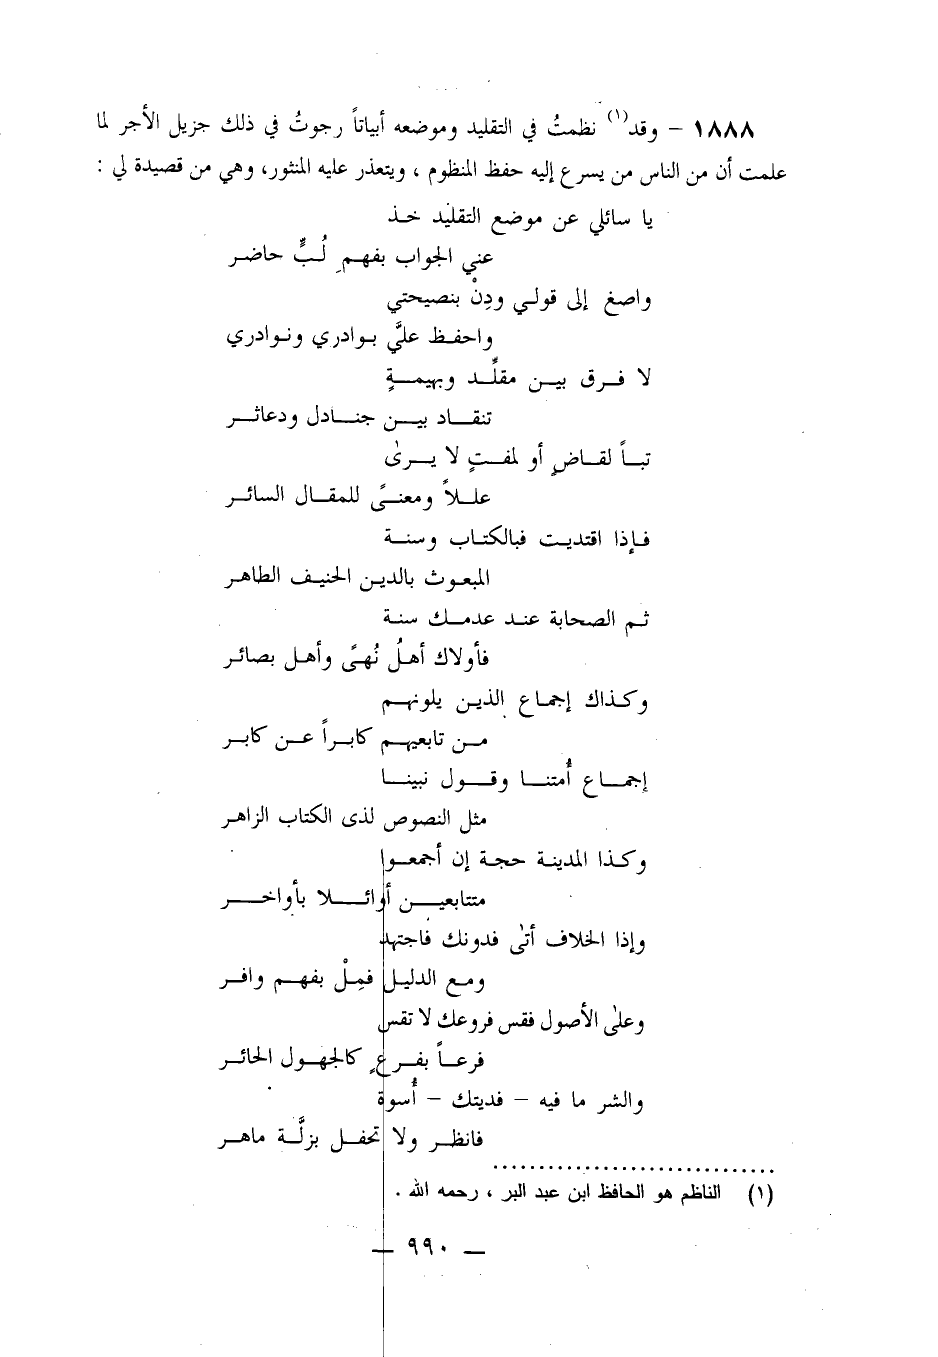 ١٨٨٨ – وقد(١) نظمتُ في التقليد وموضعه أبياتاً رجوتُ في ذلك جزيل الأجر لما
علمت أن من الناس من يسرع إليه حفظ المنظوم ، ويتعذر عليه المنثور، وهي من قصيدة لي :
يا سائلي عن موضع التقليد خذ
عني الجواب بفهمِ لُبٍّ حاضر
واصغ إلى قولي ودِنْ بنصيحتي
واحفظ عليَّ بوادري ونوادري
لا فرق بين مقلِّد وبهيمةٍ
تنقاد بين جنادل ودعاثر
تباً لقاضٍ أو لمفتٍ لا يرىٰ
عللاً ومعنىً للمقال السائر
فإذا اقتديت فبالكتاب وسنة
المبعوث بالدين الحنيف الطاهر
ثم الصحابة عند عدمك سنة
فأولاك أهلُ نُهىً وأهل بصائر
وكذاك إجماع الذين يلونهم
من تابعيهم كابراً عن كابر
إجماع أُمتنا وقول نبينا
مثل النصوص لذى الكتاب الزاهر
وكذا المدينة حجة إن أجمعوا
متتابعين أوائلا بأواخر
وإذا الخلاف أتى فدونك فاجتهد
ومع الدليل فمِلْ بفهم وافر
وعلى الأصول فقس فروعك لا تقس
فرعاً بفرعٍ كالجهول الحائر
والشر ما فيه – فديتك – أُسوة
فانظر ولا تحفل بزلَّة ماهر
(١) الناظم هو الحافظ ابن عبد البر ، رحمه الله .
– ٩٩٠ –